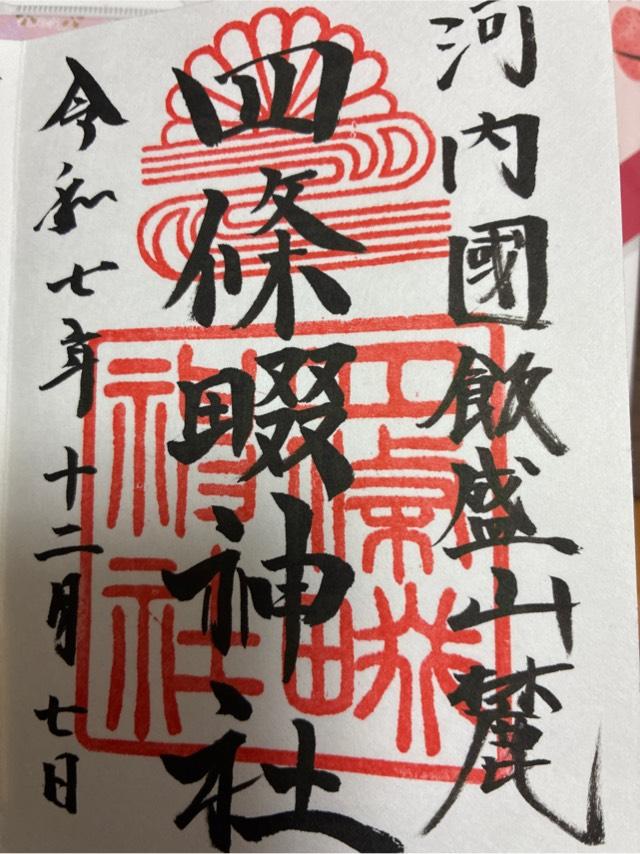 河内國飯盛山麓
四條畷神社
令和七年十二月七日